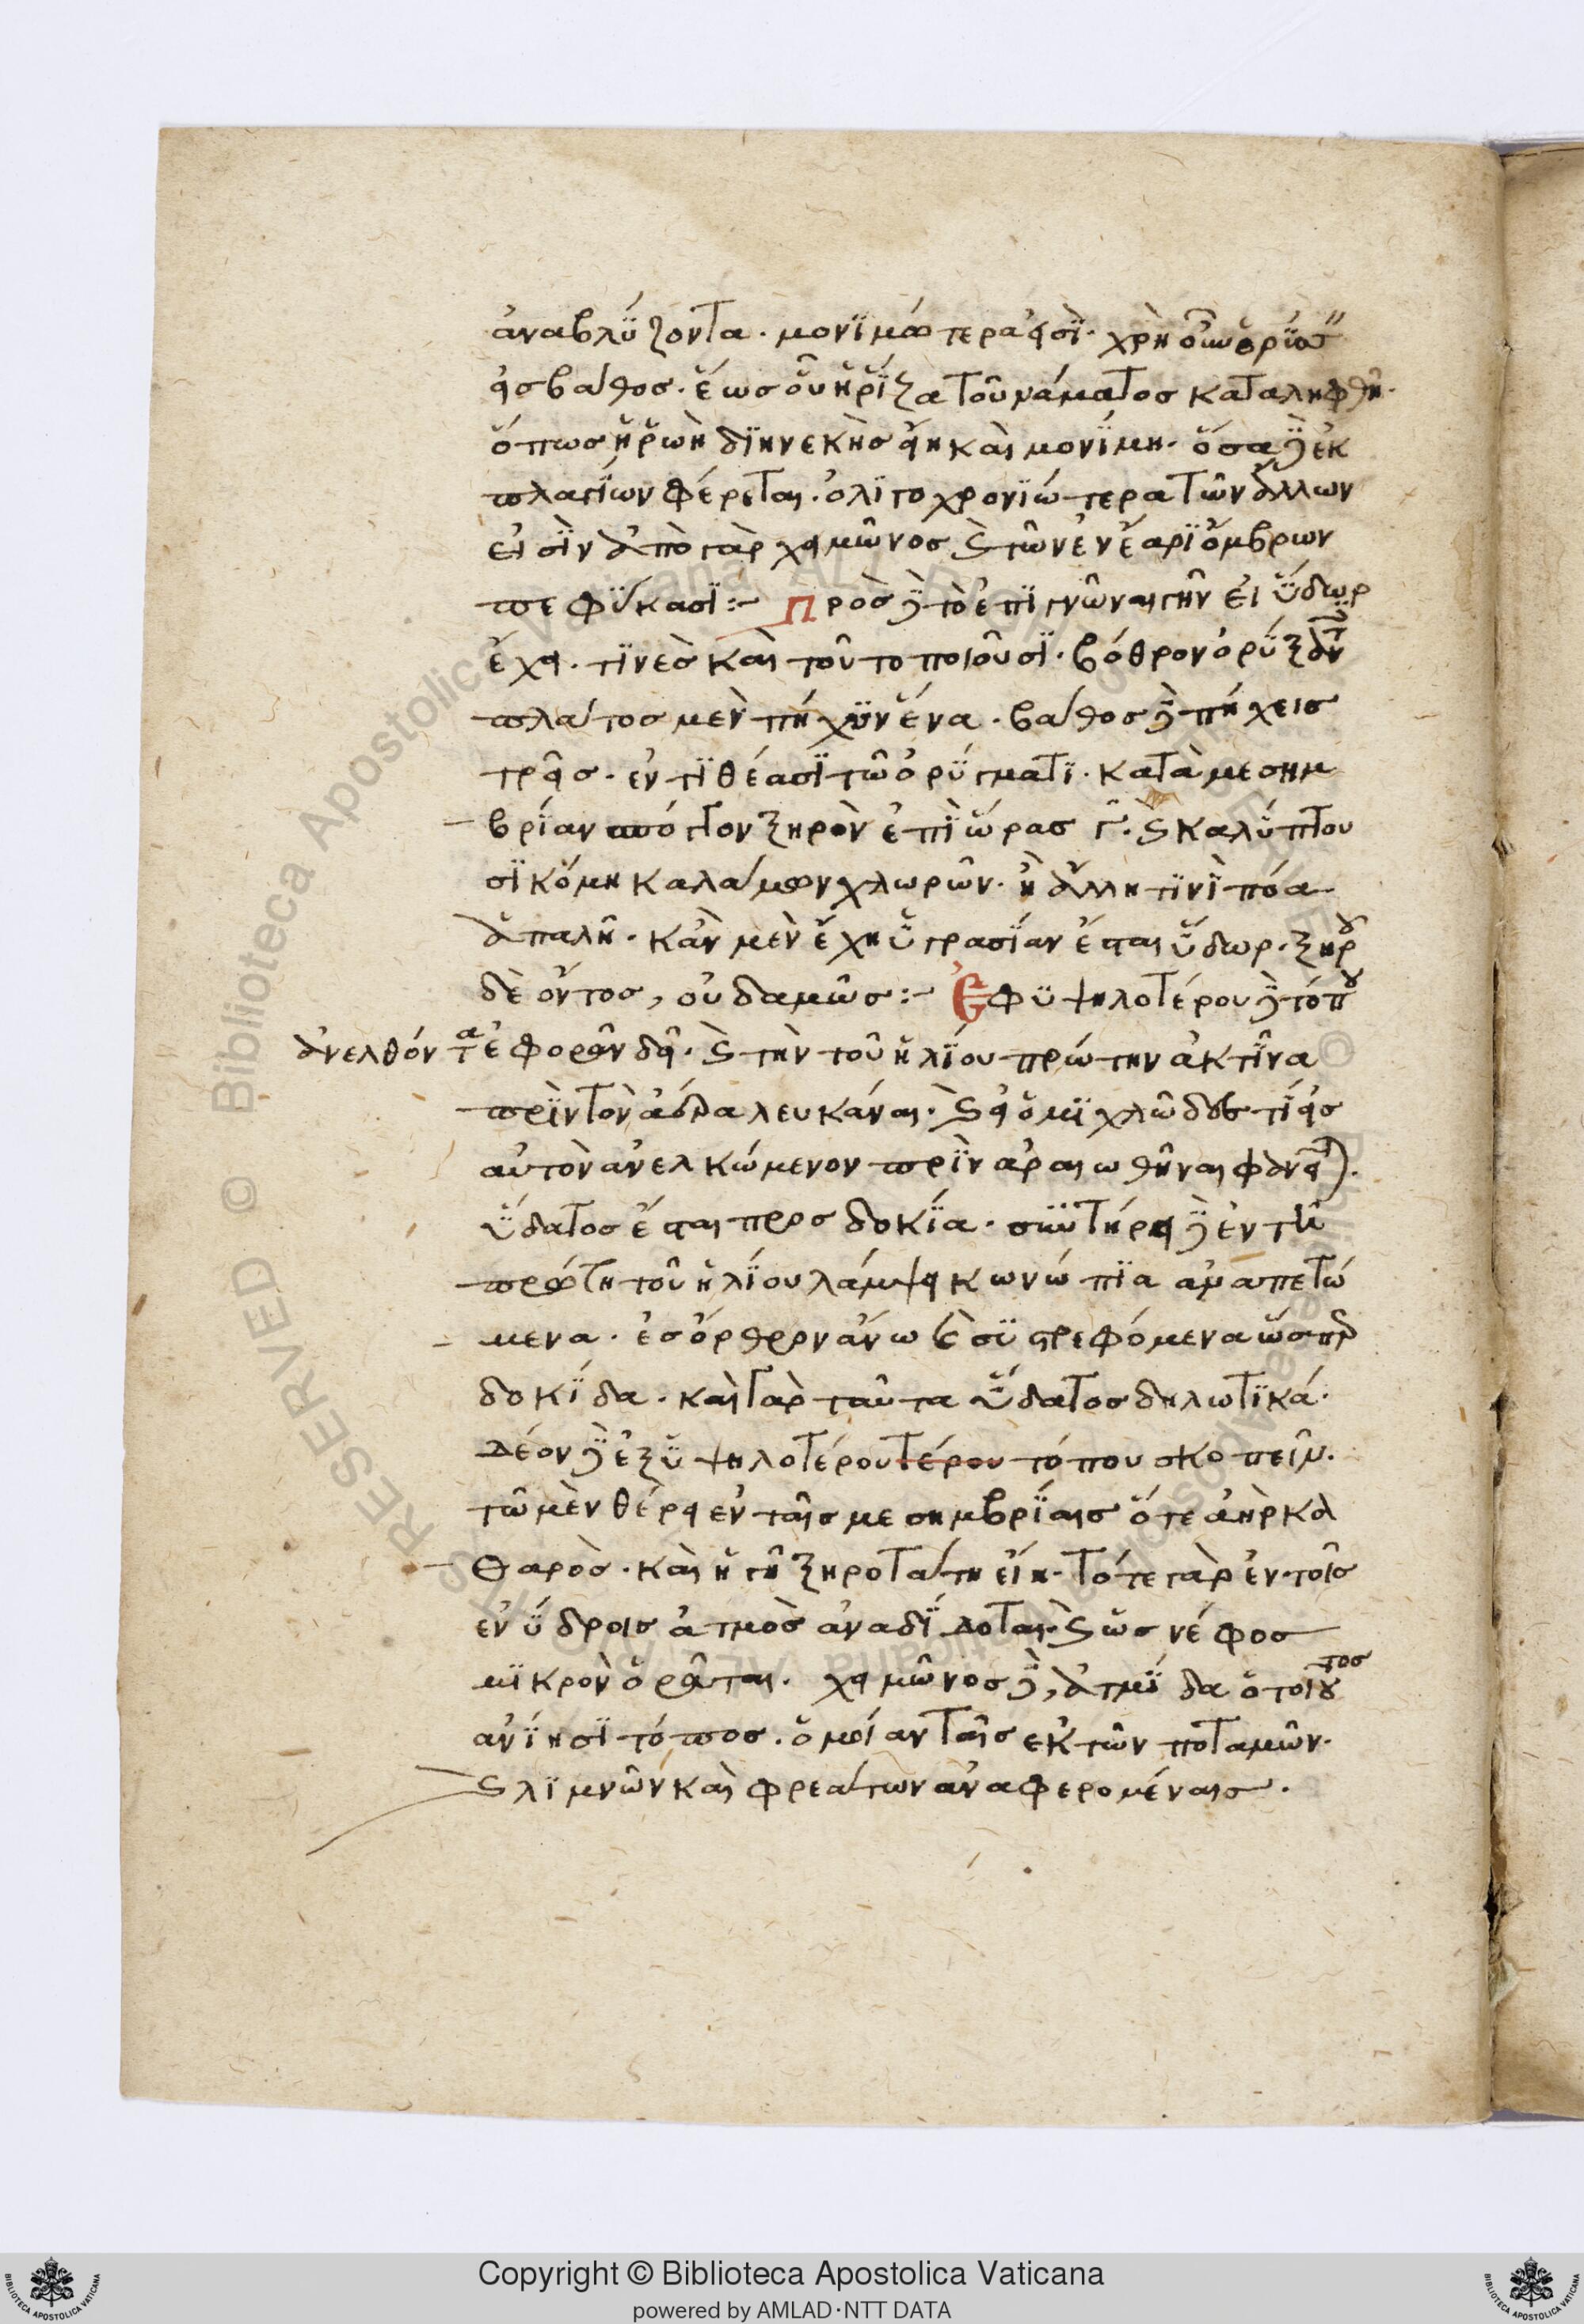 ἀναβλύζοντα. μονιμώτερα εἰσί. χρὴ οὖν ὀρύσσ
εἰς βάθος. ἕως οὗ ἡ ῥίζα τοῦ νάματος καταληφθῆ.
ὅπως ἡ ῥωὴ διηνεκὴς εἴη καὶ μονίμη. ὅσα δὲ ἐκ
πλαγίων φέρεται. ὀλιγοχρονιώτερα τῶν ἄλλων
εἰσὶν ἀπὸ γὰρ χειμῶνος καὶ τῶν ἐν ἔαρι ὄμβρων
πεφύκασι:- Πρὸς δὲ τὸ ἐπιγνῶναι γῆν εἰ ὕδωρ
ἔχει. τινὲς καὶ τοῦτο ποιοῦσι. βόθρον ὀρύξαντες
πλάτος μὲν πήχυν ἕνα. βάθος δὲ πήχεις
τρεῖς. ἐντιθέασι τῶ ὀρύγματι. κατὰ μεσημ
βρίαν σπόγγον ξηρὸν ἐπὶ ὥρας γ. καὶ καλύπτου
σι κόμη καλάμων χλωρῶν. ἢ ἄλλη τινὶ πόα
ἁπαλῆ. κἂν μὲν ἔχη ὑγρασίαν ἔσται ὕδωρ. ξηροῦ
δὲ ὄντος, οὐδαμῶς:- Ἐφ ὑψηλοτέρου δὲ τόπου
ἀνελθόντα ἐφορᾶν δεῖ. καὶ τὴν τοῦ ἡλίου πρώτην ἀκτῖνα
πρὶν τὸν ἀέρα λευκάναι. καὶ εἰ ὁμιχλῶδες τι εἰς
αὐτὸν ἀνελκώμενον πρὶν ἀραιωθῆναι φανεῖ.
ὕδατος ἔσται προσδοκία. σημυτήρει δὲ ἐν τῆ
πρώτη τοῦ ἡλίου λάμψει κωνώπια ἅμα πετώ
μενα. ἐς ὄρθρον ἄνω καὶ συστρεφόμενα ὥσπερ
δοκίδα. καὶ γὰρ ταῦτα ὕδατος δηλωτικά.
Δέον δὲ ἐξ ὑψηλοτέρουτέρου τόπου σκοπεῖν.
τῶ μὲν θέρει ἐν ταῖς μεσημβρίαις ὅτε ἀὴρ κα
θαρὸς. καὶ ἡ γῆ ξηροτάτη εἴη. τότε γὰρ ἐν τοῖς
ἐνύδροις ἀτμὸς ἀναδίδοται. καὶ ὡς νέφος
μικρὸν ὁρᾶται. χειμῶνος δὲ, ἀτμίδα ὁ τοιοῦτος
ἀνίησι τόπος. ὁμοίαν ταῖς ἐκ τῶν ποταμῶν.
καὶ λιμνῶν καὶ φρεάτων ἀναφερομέναις.
Copyright © Biblioteca Apostolica Vaticana
powered by AMLAD·NTT DATA